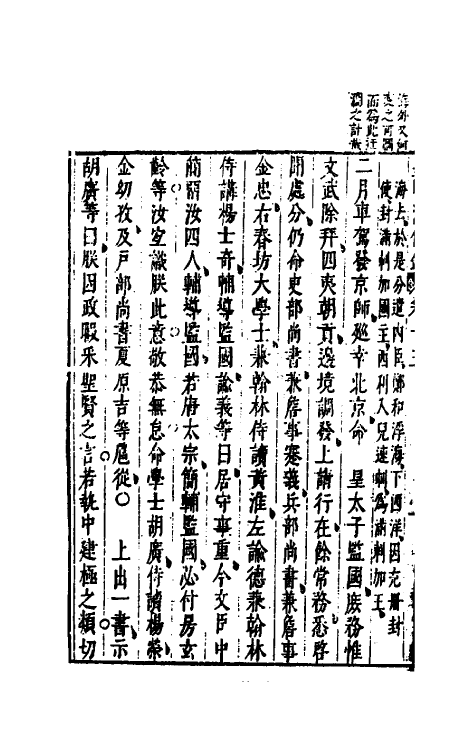 海外又何
而為此迂
濶之計哉
海上於是分遣內臣鄭和浮海下西洋因充冊封
使封滿剌加國主西利入兒速剌為滿剌加王
二月車駕發京師巡幸北京命　皇太子監國庶務惟
文武除拜四夷朝貢邊境調發上請行在餘常務悉啓
聞處分仍命吏部尚書兼詹事蹇義兵部尚書兼詹事
金忠右春坊大學士兼翰林侍讀黃淮左諭德兼翰林
侍講楊士奇輔導監國諭義等曰居守事重今文臣中
簡畱汝四人輔導監國若唐太宗簡輔監國必付房玄
齡等汝宜識朕此意敬恭無怠命學士胡廣侍講楊榮
金幼孜及戶部尚書夏原吉等扈從○　上出一書示
胡廣等曰朕因政暇釆聖賢之言若執中建極之類切